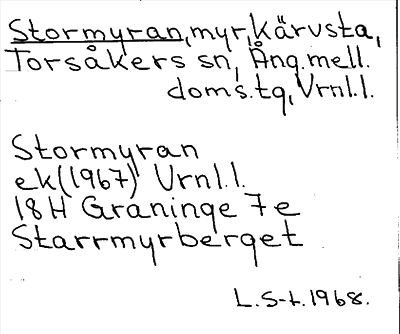 Stormyran, myr, Kärvsta,
Torsåkers sn, Ång. mell.
doms. tg, Vrnl. l.
Stormyran
ek (1967) Vrnl. l.
18 H Graninge 7 e
Starrmyrberget
L. S-t. 1968.